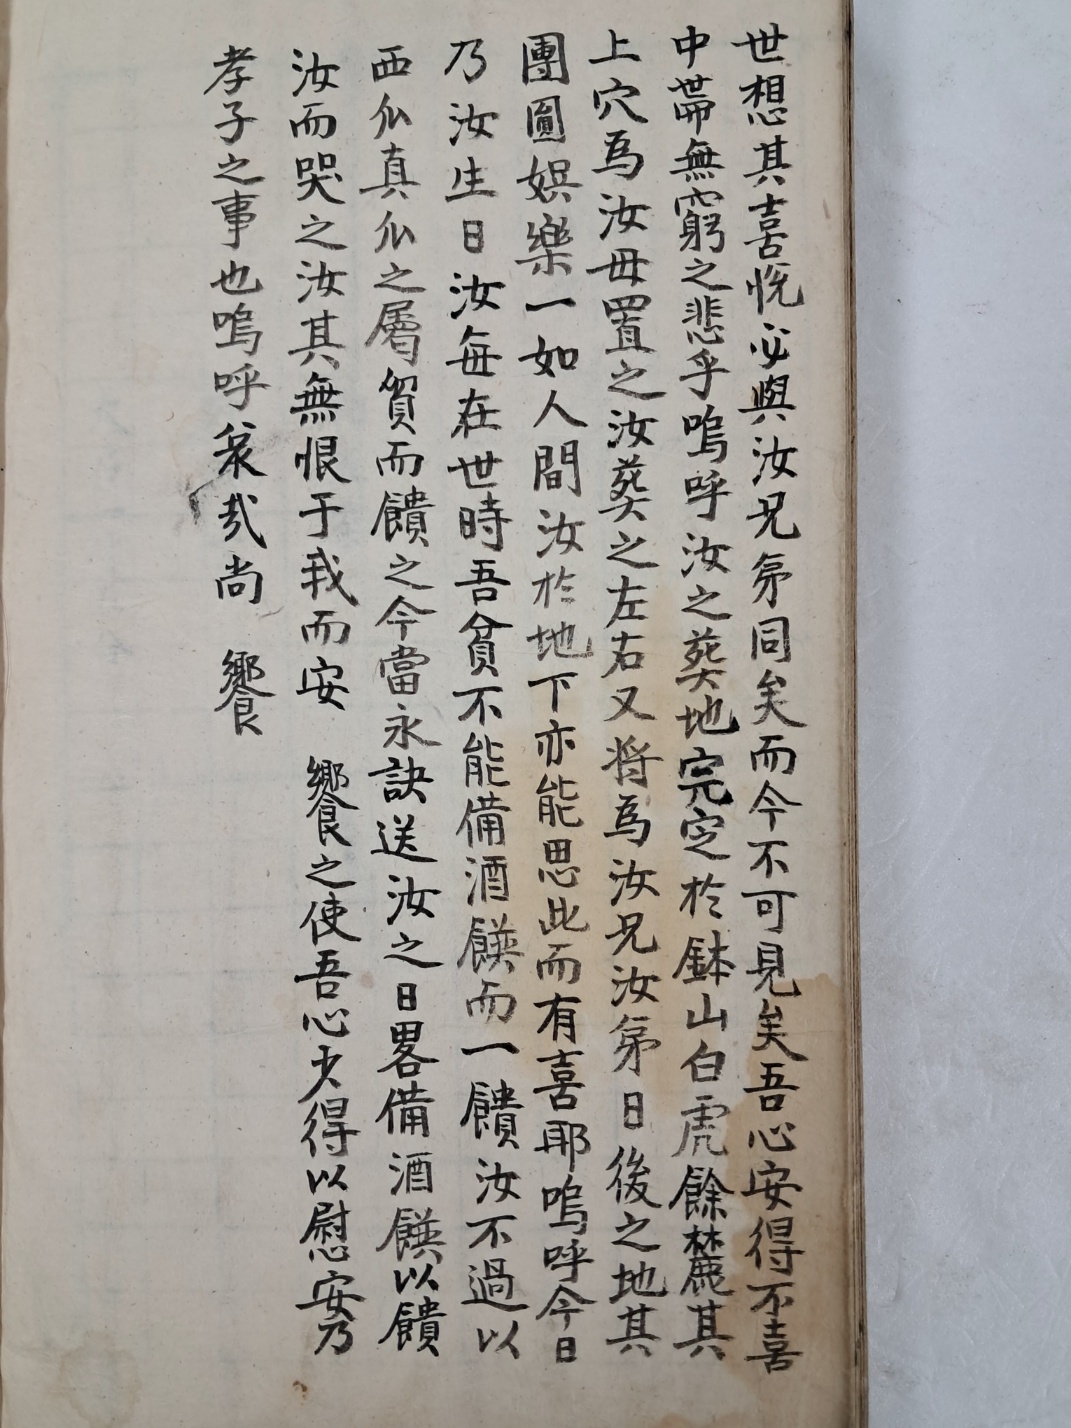 世想其喜悅必與汝兄弟同矣而今不可見矣吾心安得不喜
中帶無窮之悲乎嗚呼汝之葬地完定於鉢山白虎餘麓其
上穴爲汝母置之汝葬之左右又将爲汝兄汝弟日後之地其
團圓娯樂一如人間汝於地下亦能思此而有喜耶嗚呼今日
乃汝生日汝每在世時吾貧不能備酒饌而一饋汝不過以
西瓜真瓜之屬貿而饋之今當永訣送汝之日畧備酒饌以饋
汝而哭之汝其無恨于我而安 饗之使吾心少得以慰安乃
孝子之事也嗚呼哀哉尚 饗